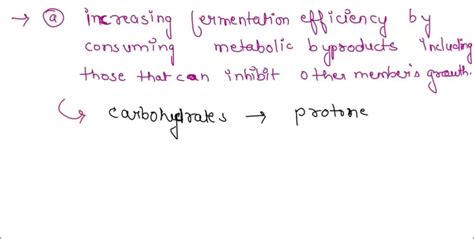 → ⓐ increasing fermentation efficiency by
consuming metabolic byproducts including
those that can inhibit other member's growth.
↳ carbohydrates → protone